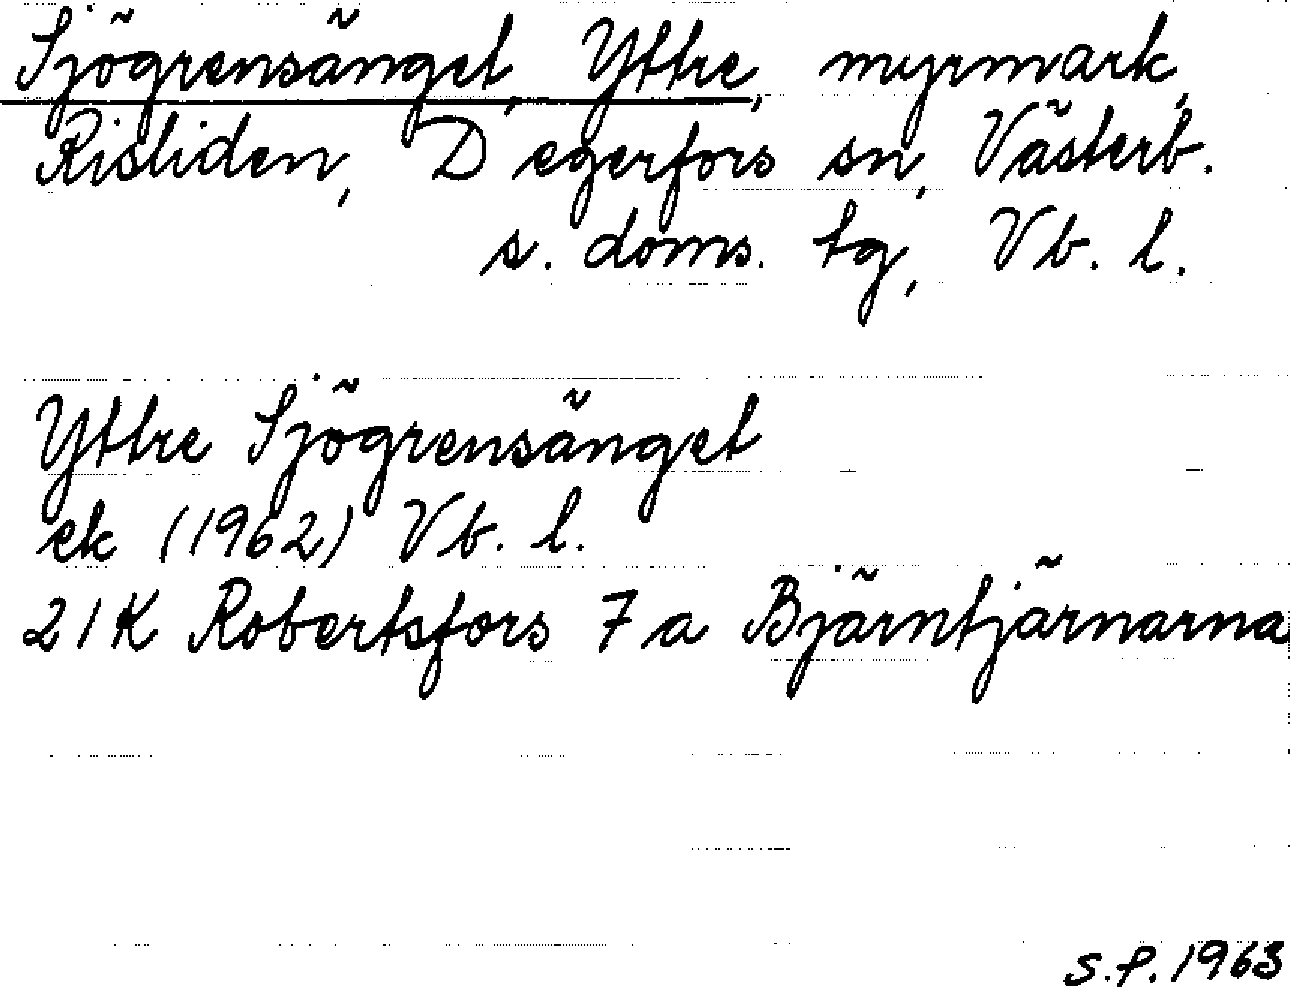 Sjögrensänget, Yttre, myrmark,
Risliden, Degerfors sn, Västerb.
s. doms. tg, Vb. l.
Yttre Sjögrensänget
ek (1962) Vb. l.
21K Robertsfors 7a Bjärntjärnarna
S.P. 1963